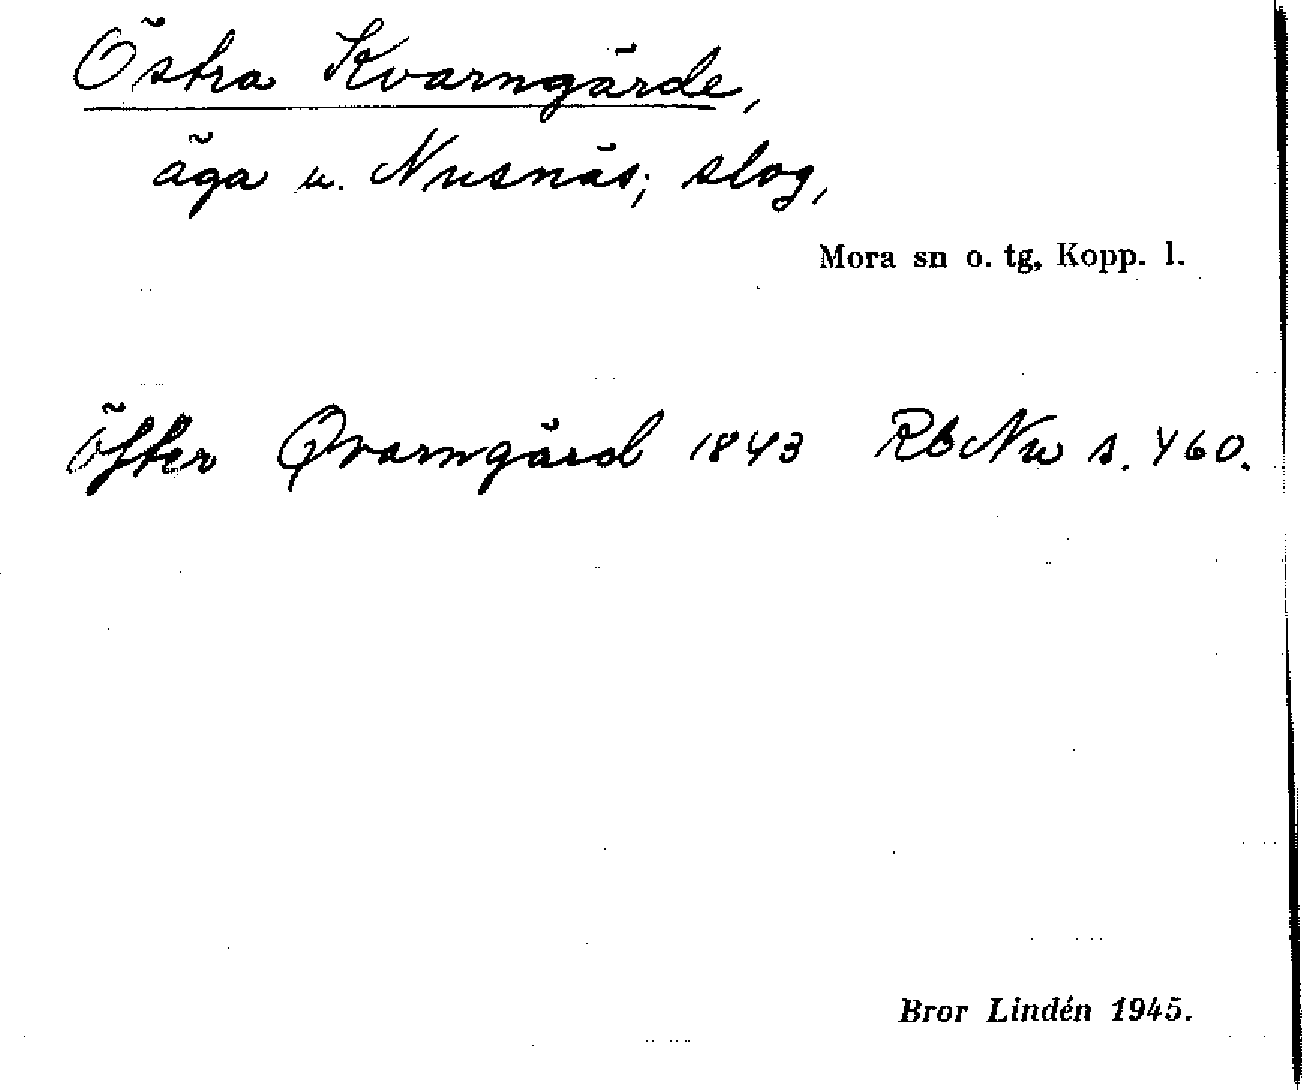 Östra Kvarngärde,
äga u. Nusnäs; slog,
Mora sn o. tg, Kopp. l.
öfter Qvarngärd 1843 RbNu s. 460.
Bror Lindén 1945.